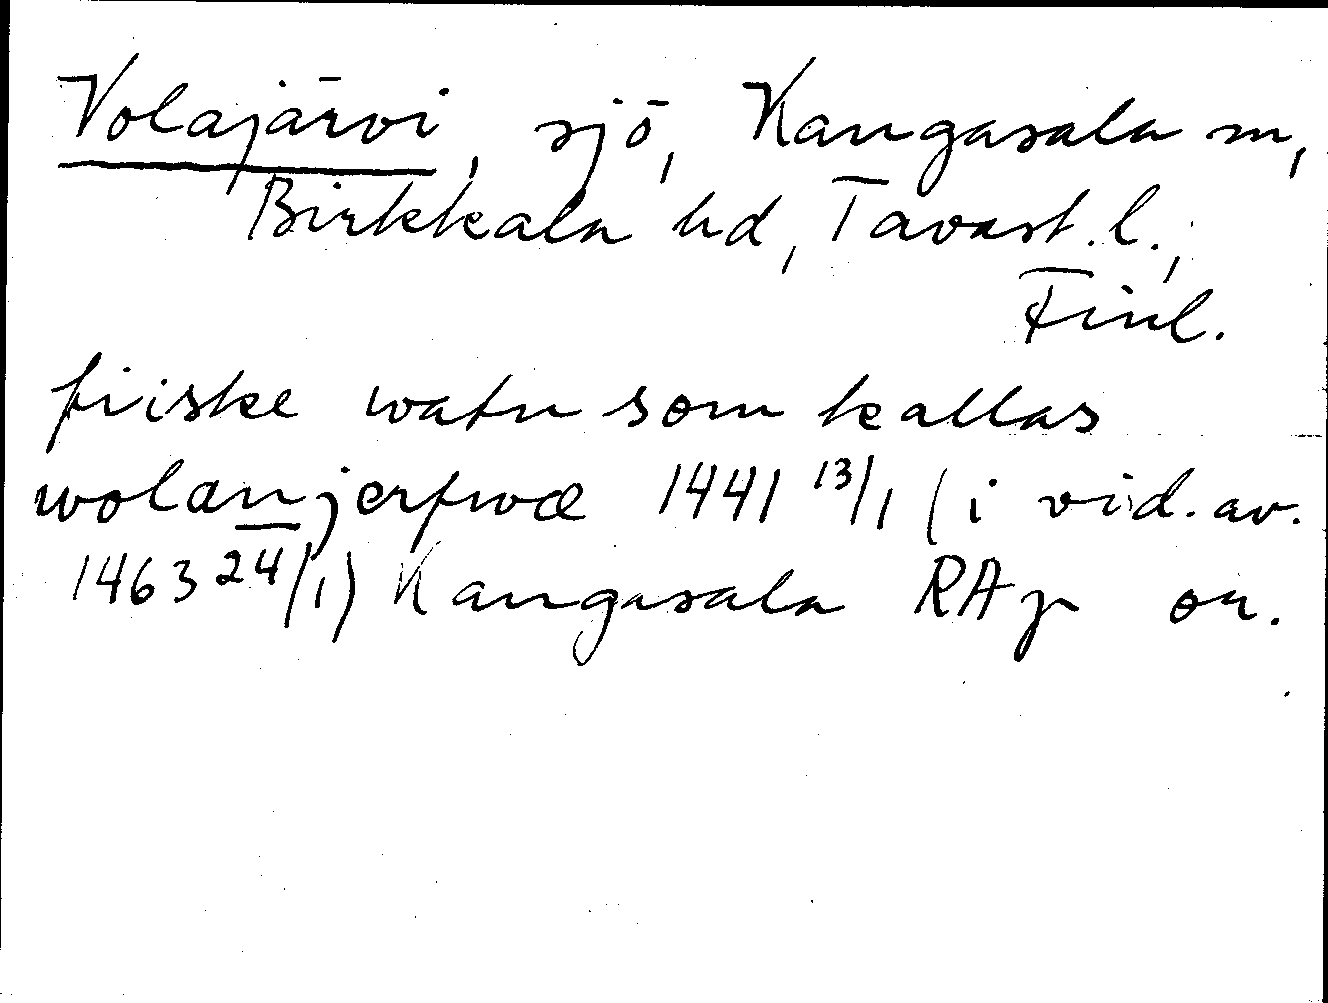 Volajärvi, sjö, Kangasala sn,
Birkkala hd, Tavast.l.,
Finl.
fiiske watn som kallas
wolanjerfwæ 1441 13/1 (i vid.av.
1463 24/1) Kangasala RAp or.